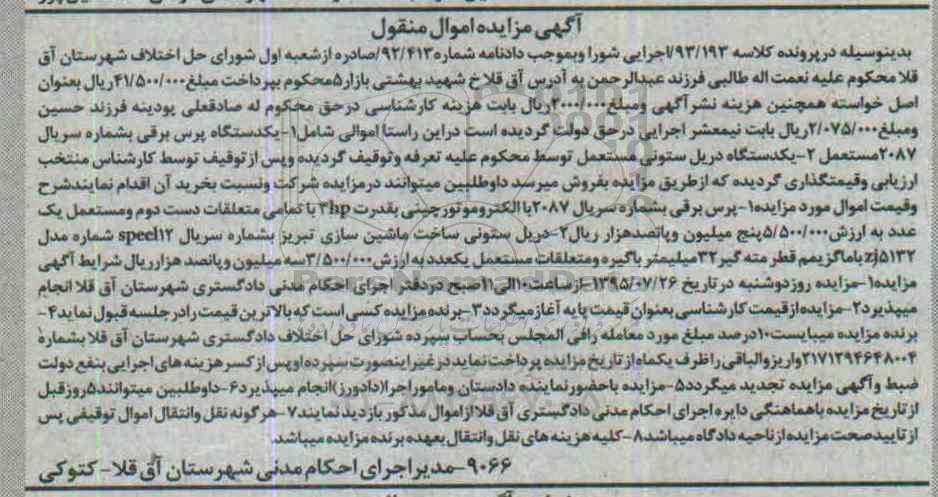 آگهی مزایده اموال منقول
بدینوسیله در پرونده کلاسه ۹۳/۱۹۳/اجرایی شورا و بموجب دادنامه شماره ۹۲/۴۱۳/صادره از شعبه اول شورای حل اختلاف شهرستان آق
قلا محکوم علیه نعمت اله طالبی فرزند عبدالرحمن به آدرس آق قلا خ شهید بهشتی بازار ۵ محکوم بپرداخت مبلغ ۴۱/۵۰۰/۰۰۰ ریال بعنوان
اصل خواسته همچنین هزینه نشر آگهی ومبلغ ۲۰۰۰/۰۰۰ ریال بابت هزینه کارشناسی در حق محکوم له صادقعلی پودینه فرزند حسین
ومبلغ ۲/۰۷۵/۰۰۰ ریال بابت نیمعشر اجرایی در حق دولت گردیده است در این راستا اموالی شامل ۱- یکدستگاه پرس برقی بشماره سریال
۲۰۸۷ مستعمل ۲- یکدستگاه دریل ستونی مستعمل توسط محکوم علیه تعرفه وتوقیف گردیده وپس از توقیف توسط کارشناس منتخب
ارزیابی وقیمتگذاری گردیده که از طریق مزایده بفروش میرسد داوطلبین میتوانند در مزایده شرکت ونسبت بخرید آن اقدام نمایندشرح
وقیمت اموال مورد مزایده ۱- پرس برقی بشماره سریال ۲۰۸۷ با الکتروموتور چینی بقدرت ۳hp با تمامی متعلقات دست دوم ومستعمل یک
عدد به ارزش ۵/۵۰۰/۰۰۰ پنج میلیون وپانصدهزار ریال ۲- دریل ستونی ساخت ماشین سازی تبریز بشماره سریال speel۱۲ شماره مدل
zj۵۱۳۲ باماگزیمم قطر مته گیر ۳۲ میلیمتر باگیره ومتعلقات مستعمل یکعدد به ارزش ۳/۵۰۰/۰۰۰ سه میلیون وپانصد هزارریال شرایط آگهی
مزایده ۱- مزایده روز دوشنبه در تاریخ ۱۳۹۵/۰۷/۲۶- از ساعت ۱۰ الی ۱۱ صبح در دفتر اجرای احکام مدنی دادگستری شهرستان آق قلا انجام
میپذیرد ۲- مزایده از قیمت کارشناسی بعنوان قیمت پایه آغاز میگردد ۳- برنده مزایده کسی است که بالاترین قیمت را در جلسه قبول نماید ۴-
برنده مزایده میبایست ۱۰ درصد مبلغ مورد معامله رافی المجلس بحساب سپرده شورای حل اختلاف دادگستری شهرستان آق قلا بشماره
۲۱۷۱۲۹۴۶۴۸۰۰۴ واریز والباقی را ظرف یکماه از تاریخ مزایده پرداخت نماید در غیر اینصورت سپرده او پس از کسر هزینه های اجرایی بنفع دولت
ضبط و آگهی مزایده تجدید میگردد ۵- مزایده باحضور نماینده دادستان ومامور اجرا(دادورز)انجام میپذیرد ۶- داوطلبین میتوانند ۵ روز قبل
از تاریخ مزایده باهماهنگی دایره اجرای احکام مدنی دادگستری آق قلا از اموال مذکور بازدید نمایند ۷- هرگونه نقل وانتقال اموال توقیفی پس
از تاییدصحت مزایده از ناحیه دادگاه میباشد ۸- کلیه هزینه های نقل وانتقال بعهده برنده مزایده میباشد.
۹۰۶۶- مدیر اجرای احکام مدنی شهرستان آق قلا- کتوکی